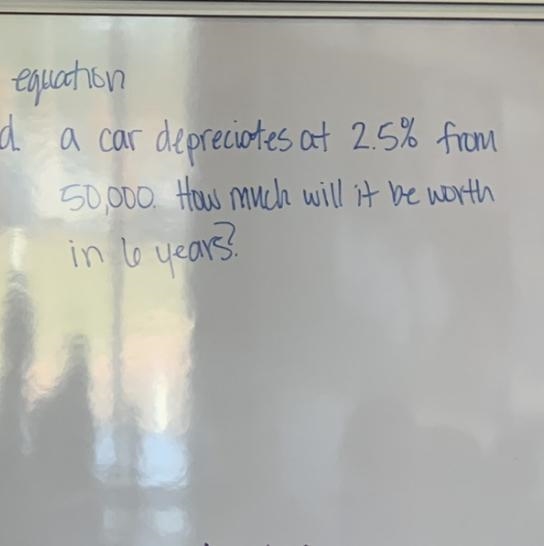 equation
d. a car depreciates at 2.5% from
50,000. How much will it be worth
in 6 years?